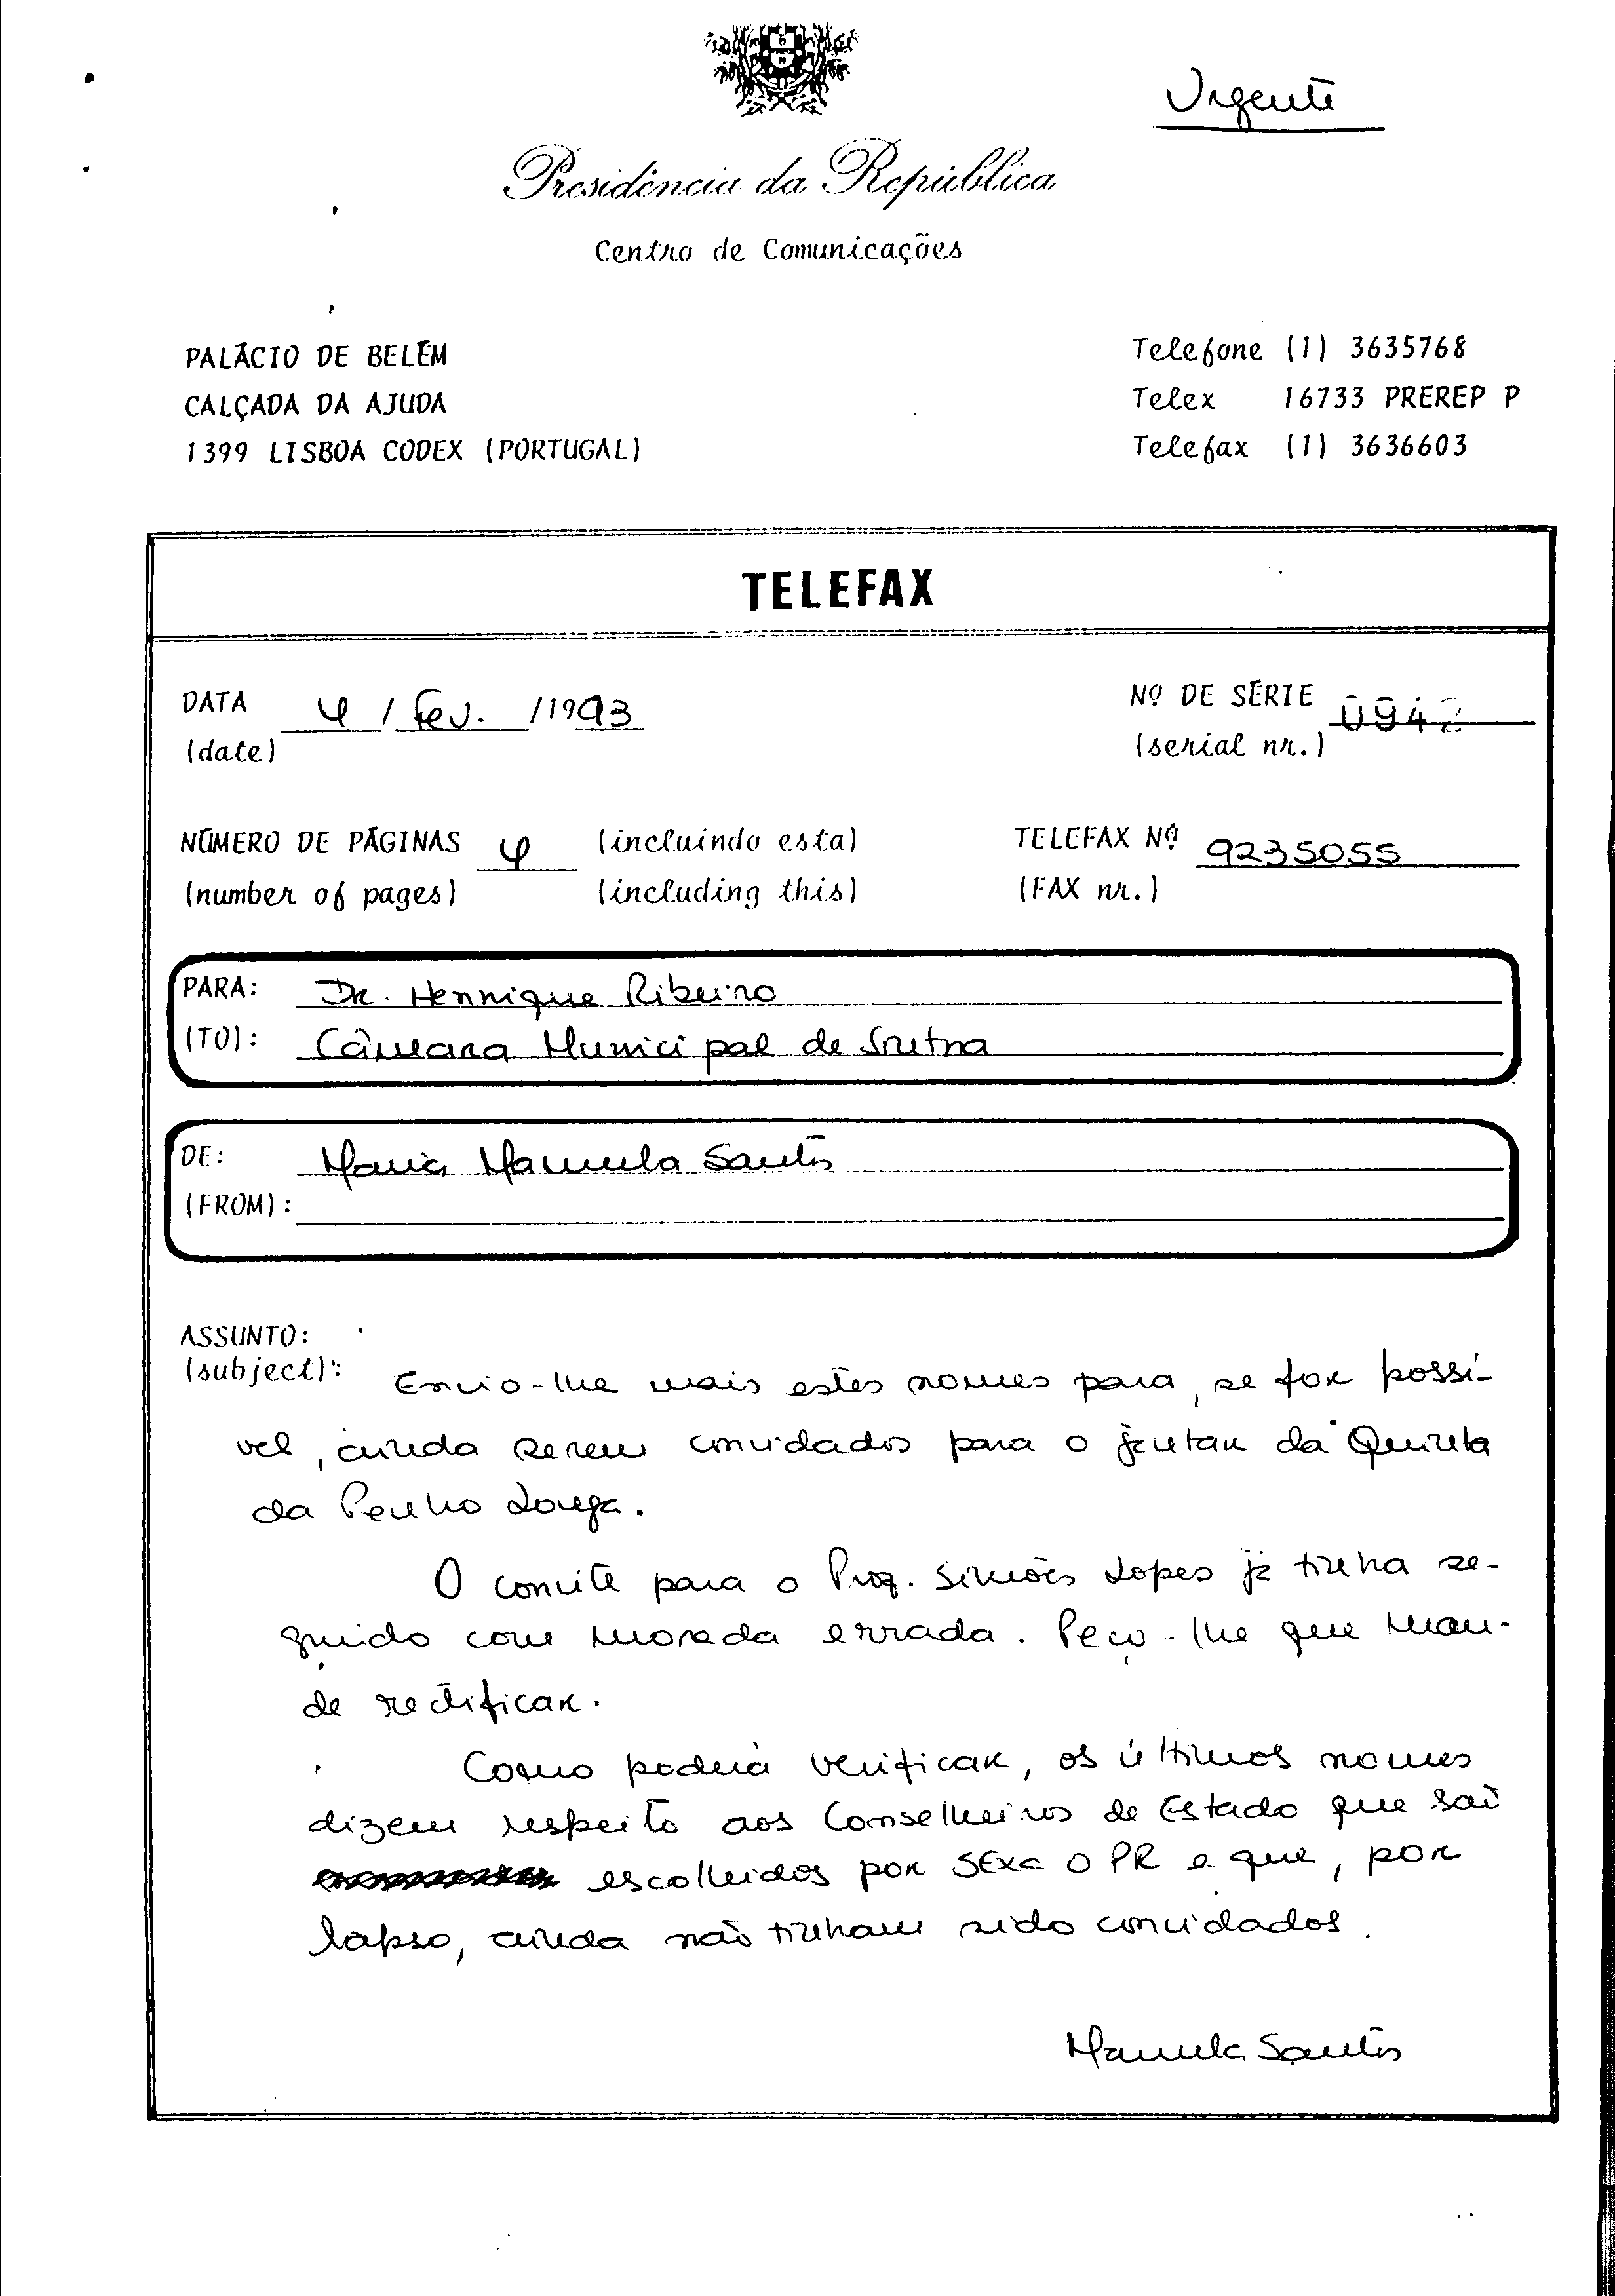 Urgente
Presidência da República
Centro de Comunicações
PALÁCIO DE BELÉM
CALÇADA DA AJUDA
1399 LISBOA CODEX (PORTUGAL)
Telefone (1) 3635768
Telex 16733 PREREP P
Telefax (1) 3636603
TELEFAX
DATA 4 / Fev. /1993
(date)
Nº DE SÉRIE 0942
(serial nr.)
NÚMERO DE PÁGINAS 4 (incluindo esta)
(number of pages) (including this)
TELEFAX Nº 9235055
(FAX nr.)
PARA: Dr. Henrique Ribeiro
(TO): Câmara Municipal de Sintra
DE: Maria Manuela Santos
(FROM):
ASSUNTO:
(subject): Envio-lhe mais estes nomes para, se for possí-
vel, ainda serem convidados para o jantar da Quinta
da Penha Longa.
O convite para o Prof. Simões Lopes já tinha se-
guido com morada errada. Peço-lhe que man-
de rectificar.
Como poderá verificar, os últimos nomes
dizem respeito aos Conselheiros de Estado que são
escolhidos por SExa O PR e que, por
lapso, ainda não tinham sido convidados.
Manuela Santos